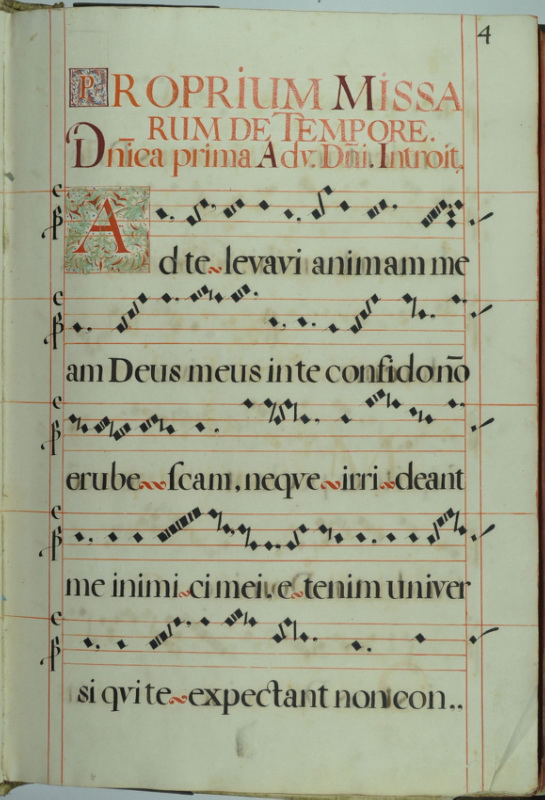 4
PROPRIUM MISSA
RUM DE TEMPORE.
Dn̄ica prima Adv. Dn̄i. Introit.
Ad te levavi animam me
am Deus meus in te confido nō
erube scam, neqve irri deant
me inimi ci mei. e tenim univer
si qvi te expectant non con..